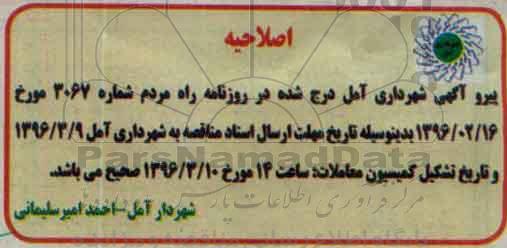 اصلاحیه
پیرو آگهی شهرداری آمل درج شده در روزنامه راه مردم شماره ۳۰۶۷ مورخ
۱۳۹۶/۰۲/۱۶ بدینوسیله تاریخ مهلت ارسال اسناد مناقصه به شهرداری آمل ۱۳۹۶/۳/۹
و تاریخ تشکیل کمیسیون معاملات: ساعت ۱۴ مورخ ۱۳۹۶/۳/۱۰ صحیح می باشد.
ParsNamadData
مرکز فرآوری اطلاعات پارس
شهردار آمل-احمد امیرسلیمانی